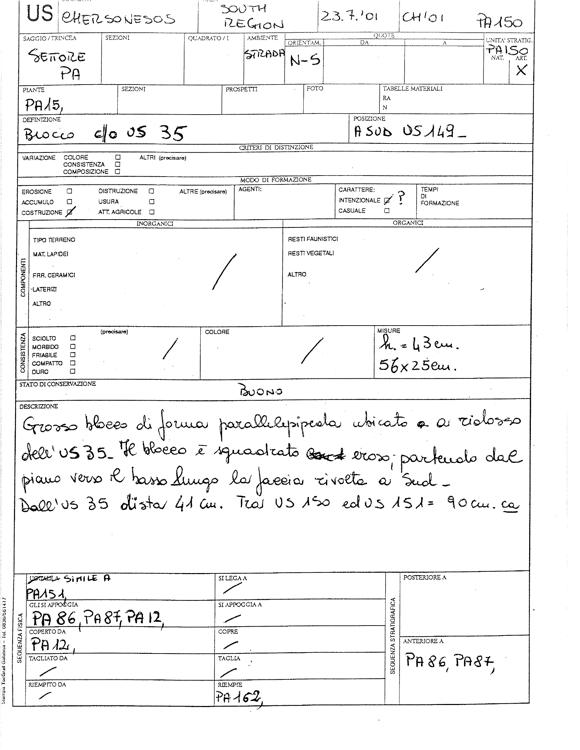 US CHERSONESOS
SOUTH REGION
23.7.'01
CH'01
PA150
SAGGIO/TRINCEA
SETTORE PA
SEZIONI
QUADRATO/I
AMBIENTE
STRADA
QUOTE
ORIENTAM.
N-S
DA
A
UNITA' STRATIG.
PA150
NAT.
ART.
X
PIANTE
PA15,
SEZIONI
PROSPETTI
FOTO
TABELLE MATERIALI
RA
N
DEFINIZIONE
BLOCCO c/o US 35
POSIZIONE
A SUD US149_
CRITERI DI DISTINZIONE
VARIAZIONE COLORE ☐ ALTRI (precisare)
CONSISTENZA ☐
COMPOSIZIONE ☐
MODO DI FORMAZIONE
EROSIONE ☐ DISTRUZIONE ☐ ALTRE (precisare)
ACCUMULO ☐ USURA ☐
COSTRUZIONE ☑ ATT. AGRICOLE ☐
AGENTI:
CARATTERE:
INTENZIONALE ☑ ?
CASUALE ☐
TEMPI
DI
FORMAZIONE
COMPONENTI
INORGANICI
TIPO TERRENO
MAT. LAPIDEI
FRR. CERAMICI
LATERIZI
ALTRO
/
ORGANICI
RESTI FAUNISTICI
RESTI VEGETALI
ALTRO
/
CONSISTENZA
SCIOLTO ☐ (precisare)
MORBIDO ☐
FRIABILE ☐
COMPATTO ☐
DURO ☐
/
COLORE
/
MISURE
h. = 43 cm.
56x25cm.
STATO DI CONSERVAZIONE
BUONO
DESCRIZIONE
Grosso blocco di forma parallelepipeda ubicato a ridosso
dell'US 35_ Il blocco è squadrato eroso; partendo dal
piano verso il basso lungo la faccia rivolta a Sud_
Dall'US 35 dista 41 cm. Tra US 150 ed US 151 = 90 cm. ca
SEQUENZA FISICA
SIMILE A
PA151,
SI LEGA A
/
GLI SI APPOGGIA
PA86, PA87, PA12,
SI APPOGGIA A
/
COPERTO DA
PA12,
COPRE
/
TAGLIATO DA
/
TAGLIA
/
RIEMPITO DA
/
RIEMPIE
PA162,
SEQUENZA STRATIGRAFICA
POSTERIORE A
ANTERIORE A
PA86, PA87,